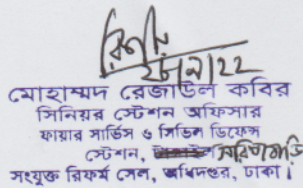 ২৮/৭/২২
মোহাম্মদ রেজাউল কবির
সিনিয়র স্টেশন অফিসার
ফায়ার সার্ভিস ও সিভিল ডিফেন্স
স্টেশন,
সংযুক্ত রিফর্ম সেল, অধিদপ্তর, ঢাকা।